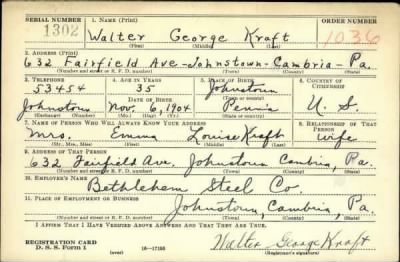 SERIAL NUMBER 1. NAME (Print) ORDER NUMBER
1302 Walter George Kraft 1036
(First) (Middle) (Last)
2. ADDRESS (Print)
632 Fairfield Ave-Johnstown-Cambria-Pa.
(Number and street or R. F. D. number) (Town) (County) (State)
3. TELEPHONE 4. AGE IN YEARS 5. PLACE OF BIRTH 6. COUNTRY OF CITIZENSHIP
53454 35 Johnstown
DATE OF BIRTH (Town or county)
Johnstown Nov. 6, 1904 Penna U. S.
(Exchange) (Number) (Mo.) (Day) (Yr.) (State or country)
7. NAME OF PERSON WHO WILL ALWAYS KNOW YOUR ADDRESS 8. RELATIONSHIP OF THAT PERSON
Mrs. Emma Louise Kraft Wife
(Mr., Mrs., Miss) (First) (Middle) (Last)
9. ADDRESS OF THAT PERSON
632 Fairfield Ave. Johnstown Cambria, Pa.
(Number and street or R. F. D. number) (Town) (County) (State)
10. EMPLOYER'S NAME
Bethlehem Steel Co.
11. PLACE OF EMPLOYMENT OR BUSINESS
Johnstown, Cambria, Pa.
(Number and street or R. F. D. number) (Town) (County) (State)
I AFFIRM THAT I HAVE VERIFIED ABOVE ANSWERS AND THAT THEY ARE TRUE.
REGISTRATION CARD Walter George Kraft
D. S. S. Form 1 (over) 16—17105 (Registrant's signature)